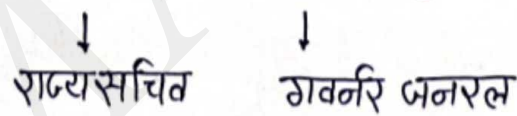 राज्य सचिव गवर्नर जनरल